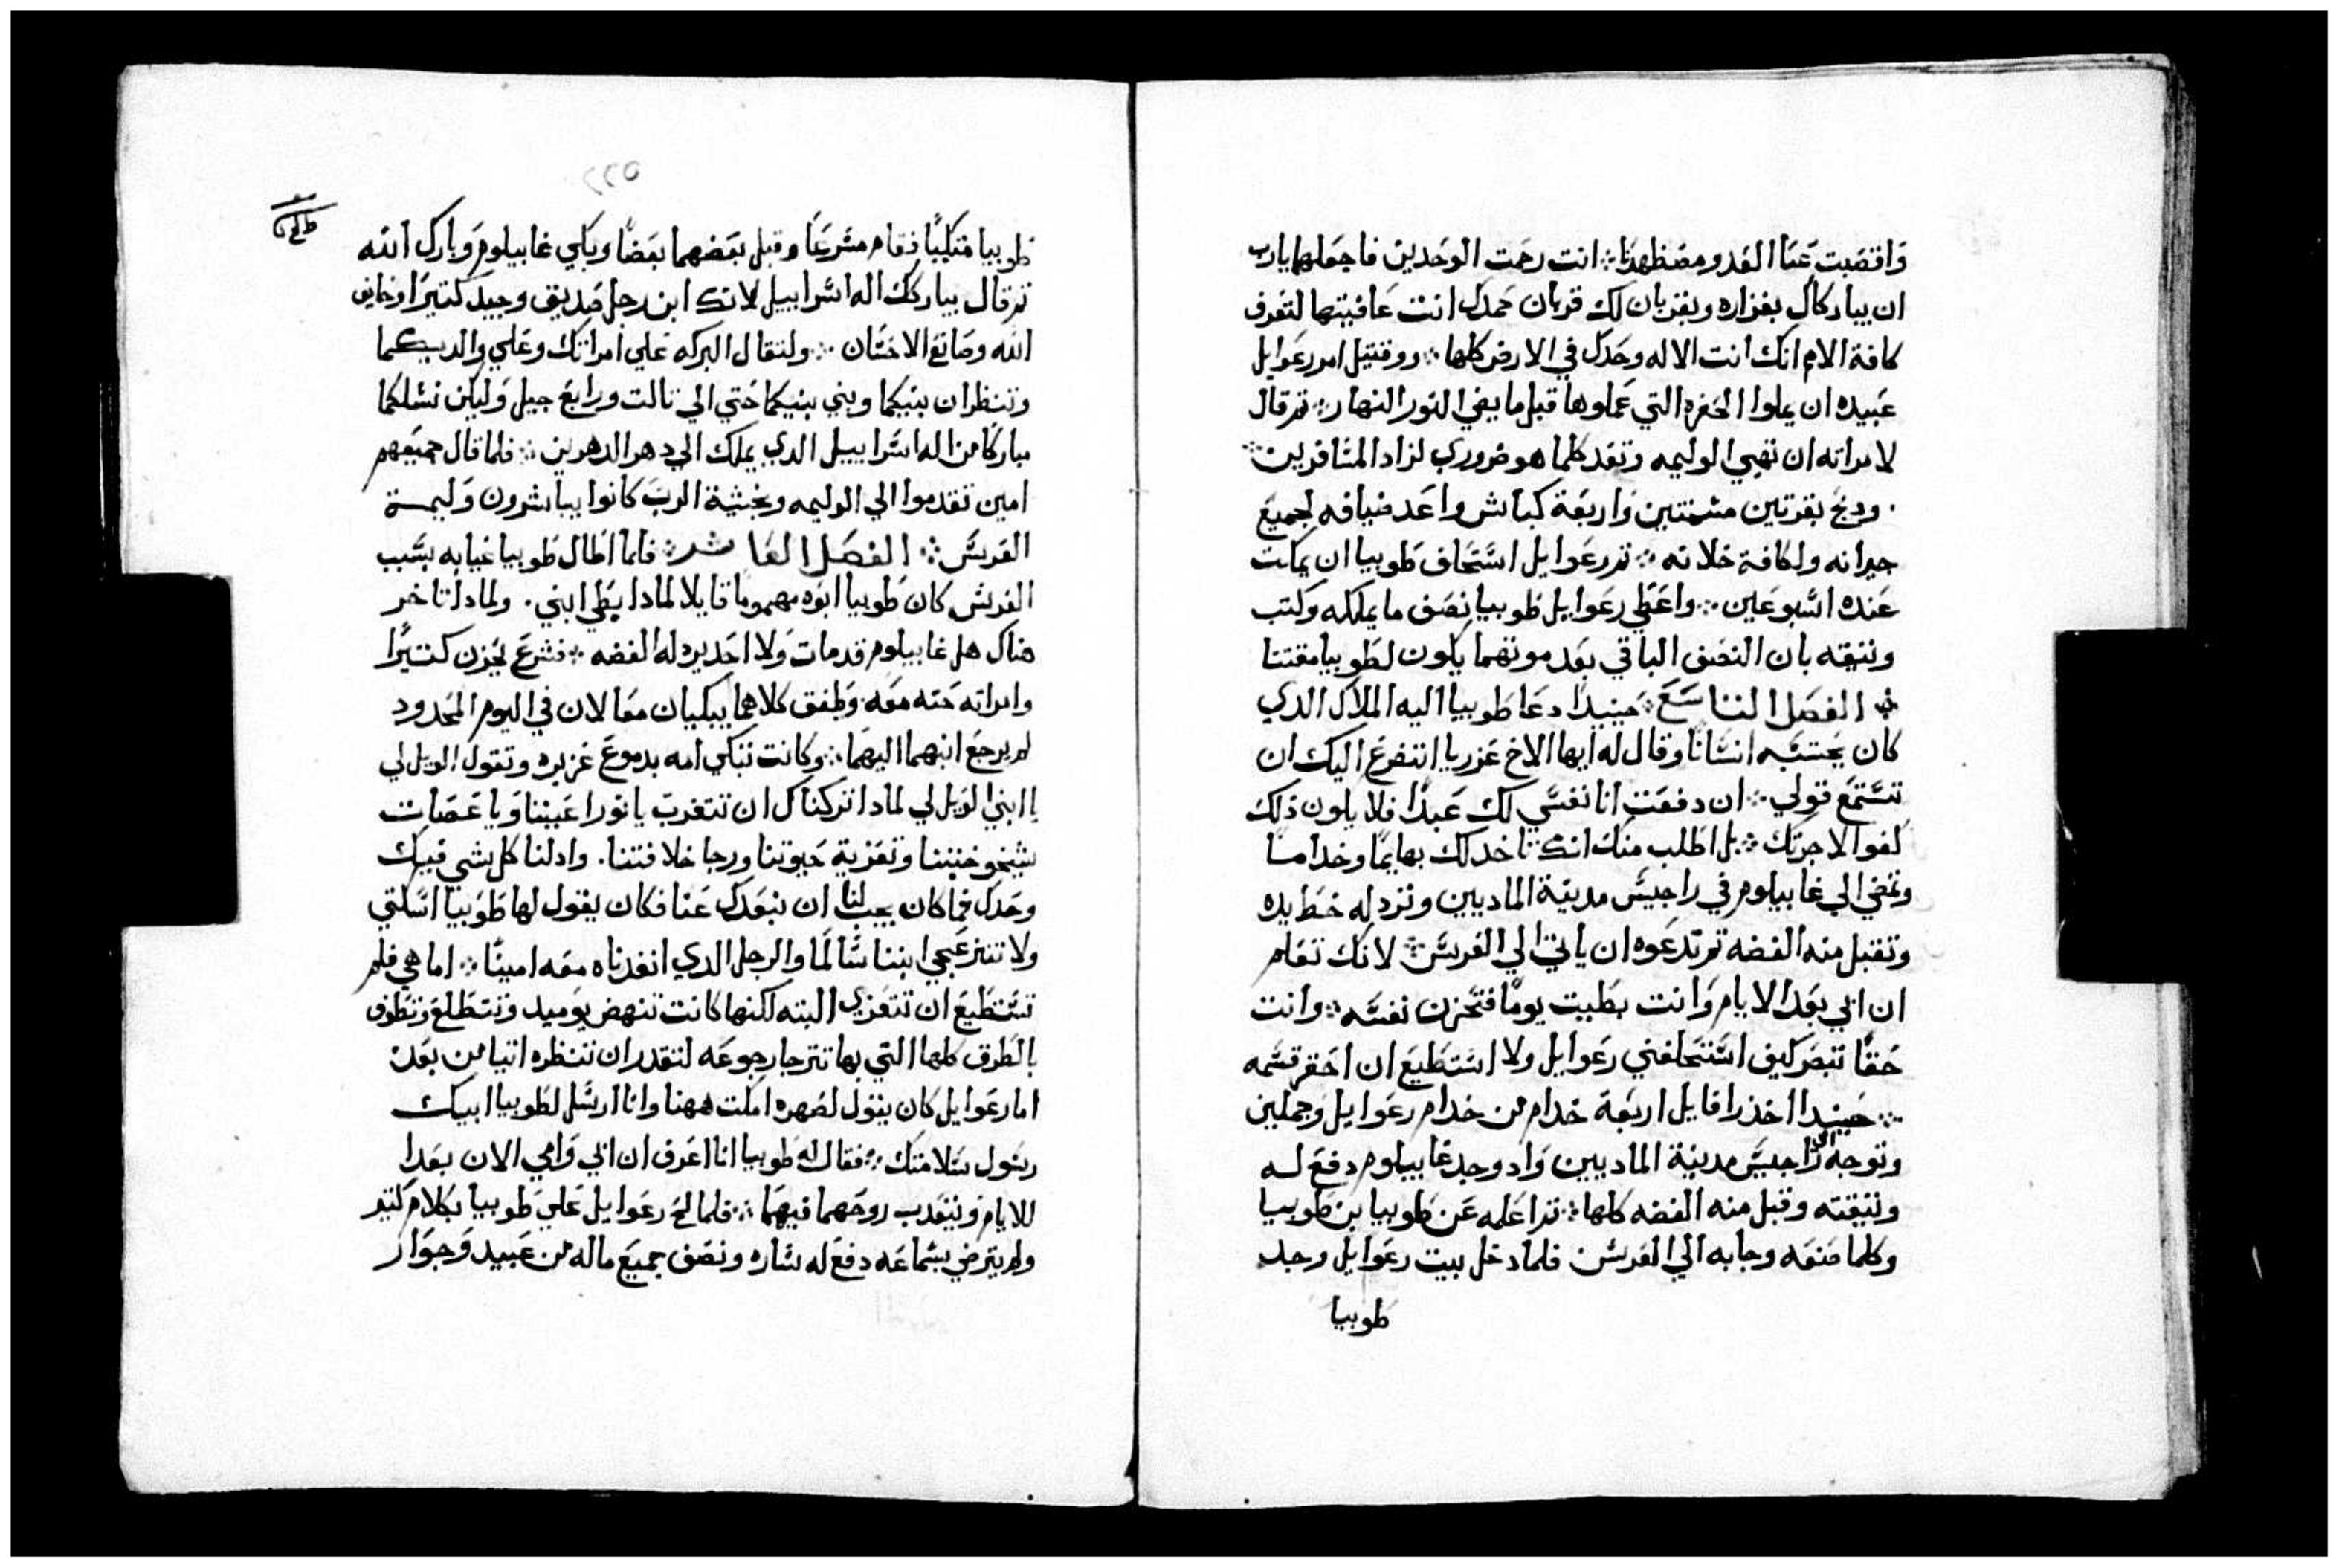 واقصبت عنا العدو مضطهدنا ∴ انت رحمت الوحدين فاجعلها يارب
ان يباركاك بغزاره ويقربان لك قربان حمدك انت عافيتها لتعرف
كافة الامم انك انت الاله وحدك في الارض كلها ∴ ووقتيل امر رعوايل
عبيده ان يملوا الحفره التي عملوها قبل ما يضي النور النهار ∴ ثم قال
لامراته ان تهيي الوليمه وتعد كلما هو ضروري لزاد المسافرين ∴
. ودبح بقرتين مسمنتين واربعة كباش واعد ضيافه لجميع
جيرانه ولكافة خلانه ∴ ثم رعوايل استحلف طوبيا ان يمكت
عنده اسبوعين ∴ واعطي رعوايل طوبيا نصف ما يملكه وكتب
وتيقه بان النصف الباقي بعد موتهما يكون لطوبيا مقتنا
∴ الفصل التاسع ∴ حينيدا دعا طوبيا اليه الملاك الدي
كان يحتسبه انسانا وقال له ايها الاخ عزريا اتضرع اليك ان
تستمع قولي ∴ ان دفعت انا نفسي لك عبدا فلا يكون ذلك
كفوا لاجرتك ∴ بل اطلب منك انك تاخد لك بهايما وخداما
وتمضي الي غابيلوم في راجيس مدينة الماديين وترد له خط يده
وتقبل منه الفضه ثم تدعوه ان ياتي الي العرس ∴ لانك تعلم
ان ابي يعد الايام وانت بطيت يوما فتحزن نفسه ∴ وانت
حقا تبصر كيف استحلفني رعوايل ولا استطيع ان احقر قسمه
∴ حينيدا اخذ رافايل اربعة خدام من خدام رعوايل وجملين
وتوجه الي راجيس مدينة الماديين واد وجد غابيلوم دفع له
وتيقته وقبل منه الفضه كلها ∴ ثم اعلمه عن طوبيا بن طوبيا
وكلما صنعه وجابه الي العرس فلما دخل بيت رعوايل وجد
طوبيا
٥٢٢
طوبيا متكيا فقام مسرعا وقبل بعضهما بعضا وبكي غابيلوم وبارك الله
ثم قال يباركك اله اسراييل لانك ابن رجل صديق وجيد كتيرا وخايف
الله وصانع الاحسان ∴ ولتقال البركه علي امراتك وعلي والديكما
وتنظران بنيكما وبني بنيكما حتي الي تالت ورابع جيل وليكن نسلكما
مباركا من اله اسراييل الدي يملك الي دهر الدهرين ∴ فلما قال جميعهم
امين تقدموا الي الوليمه وبخشية الرب كانوا يباشرون وليمة
العرس ∴ الفصل العاشر ∴ فلما اطال طوبيا غيابه بسبب
العرس كان طوبيا ابوه مهموما قايلا لمادا يبطي ابني . ولمادا تاخر
هناك هل غابيلوم قد مات ولا احد يرد له الفضه ∴ فشرع يحزن كتيرا
وامراته حنه معه وطفق كلاهما يبكيان معا لان في اليوم المحدود
لم يرجع ابنهما اليهما ∴ وكانت تبكي امه بدموع غزيره وتقول الويل لي
يا ابني الويل لي لمادا تركناك ان تتغرب يا نورا عيننا ويا عصات
شيخوختنا وتعزية حيوتنا ورجا خلافتنا . واد لنا كل شي فيك
وحدك فما كان يجب لنا ان نبعدك عنا فكان يقول لها طوبيا اسكتي
ولا تنزعجي ابننا سالما والرجل الدي انفدناه معه امينا ∴ اما هي فلم
تستطيع ان تتعزي البته لكنها كانت تنهض يوميد وتتطلع وتطوف
بالطرق كلها التي بها تترجا رجوعه لتقدر ان تنظره اتيا من بعد
اما رعوايل كان يقول لصهره امكت ههنا وانا ارسل لطوبيا ابيك
رسول سلامتك ∴ فقال له طوبيا انا اعرف ان ابي وامي الان يعدا
للايام ونيتعدب روحهما فيهما ∴ فلما لح رعوايل علي طوبيا بكلام كتير
ولم يترضي بسماعه دفع له ساره ونصف جميع ماله من عبيد وجوار